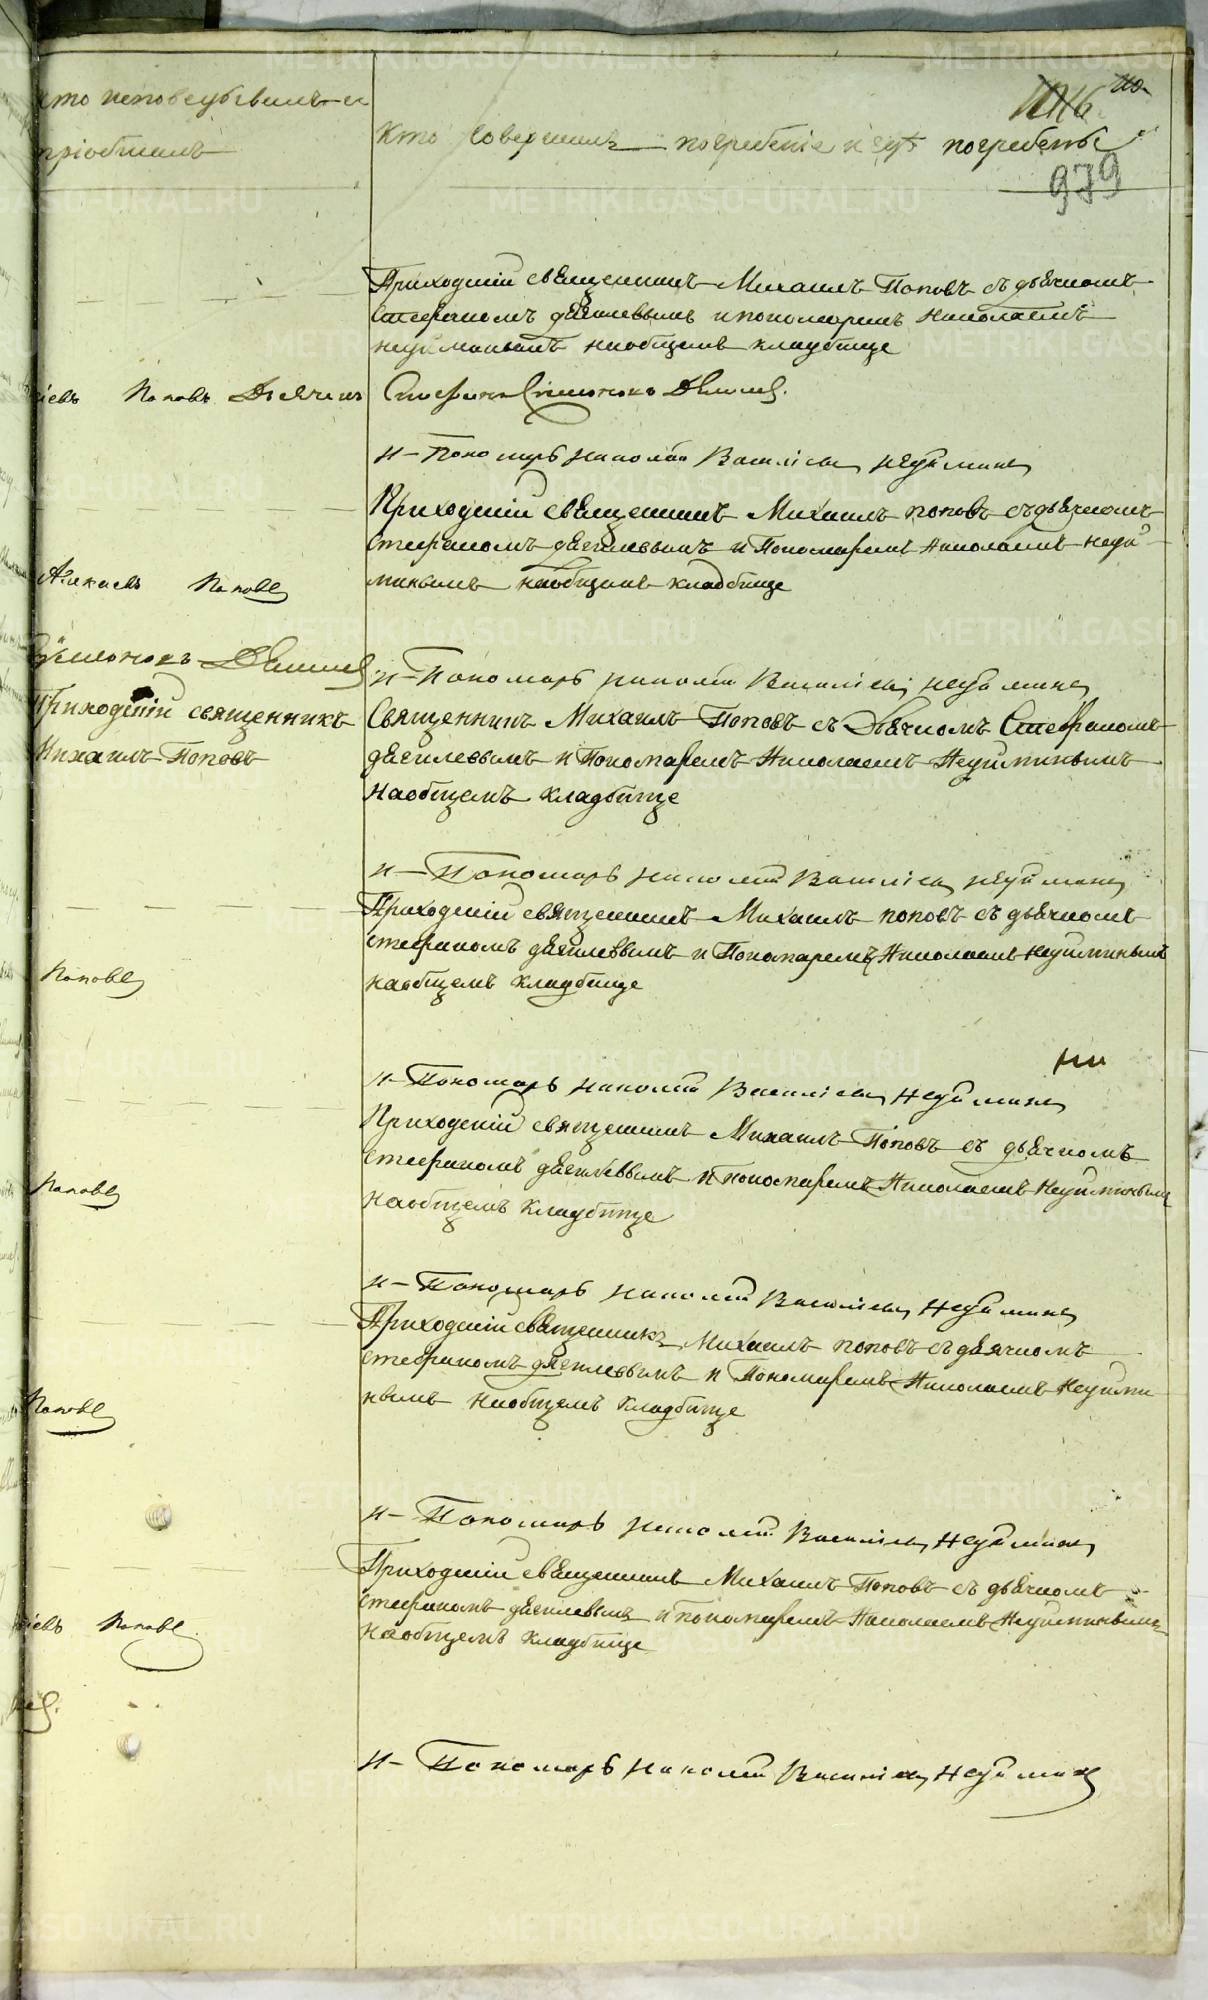 кто исповедывалъ и
пріобщалъ
Кто совершилъ погребеніе и гдѣ погребены
979
Приходскій священникъ Михаилъ Поповъ съ дьячкомъ
Стефаномъ и пономаремъ Николаемъ
наобщемъ кладбище
Поповъ Дьячекъ
Стефанъ
и Пономарь Николай Васильевъ Неуйминъ
Приходскій священникъ Михаилъ поповъ съ дьячкомъ
стефаномъ и Пономаремъ Николаемъ неуй
минымъ наобщемъ кладбище
Поповъ
и Пономарь николай Васильевъ неуйминъ
Приходскій священникъ
Михаилъ Поповъ
Священникъ Михаилъ Поповъ съ Дьячкомъ Стефаномъ
и Пономаремъ Николаемъ Неуйминымъ
наобщемъ кладбище
и Пономарь николай Васильевъ неуйминъ
Приходскій священникъ Михаилъ поповъ съ дьячкомъ
стефаномъ и Пономаремъ Николаемъ неуйминымъ
наобщемъ кладбище
Поповъ
и Пономарь николай Васильевъ Неуйминъ
Приходскій священникъ Михаилъ Поповъ съ дьячкомъ
стефаномъ и пономаремъ Николаемъ Неуйминымъ
наобщемъ кладбище
Поповъ
и Пономарь николай Васильевъ Неуйминъ
Приходскій священникъ Михаилъ поповъ съ дьячкомъ
стефаномъ и Пономаремъ Николаемъ Неуйми
нымъ наобщемъ кладбище
Поповъ
и Пономарь николай Васильевъ Неуйминъ
Приходскій священникъ Михаилъ Поповъ съ дьячкомъ
стефаномъ и пономаремъ Николаемъ Неуйминымъ
наобщемъ кладбище
Поповъ
и Пономарь николай Васильевъ Неуйминъ
METRIKI.GASO-URAL.RU